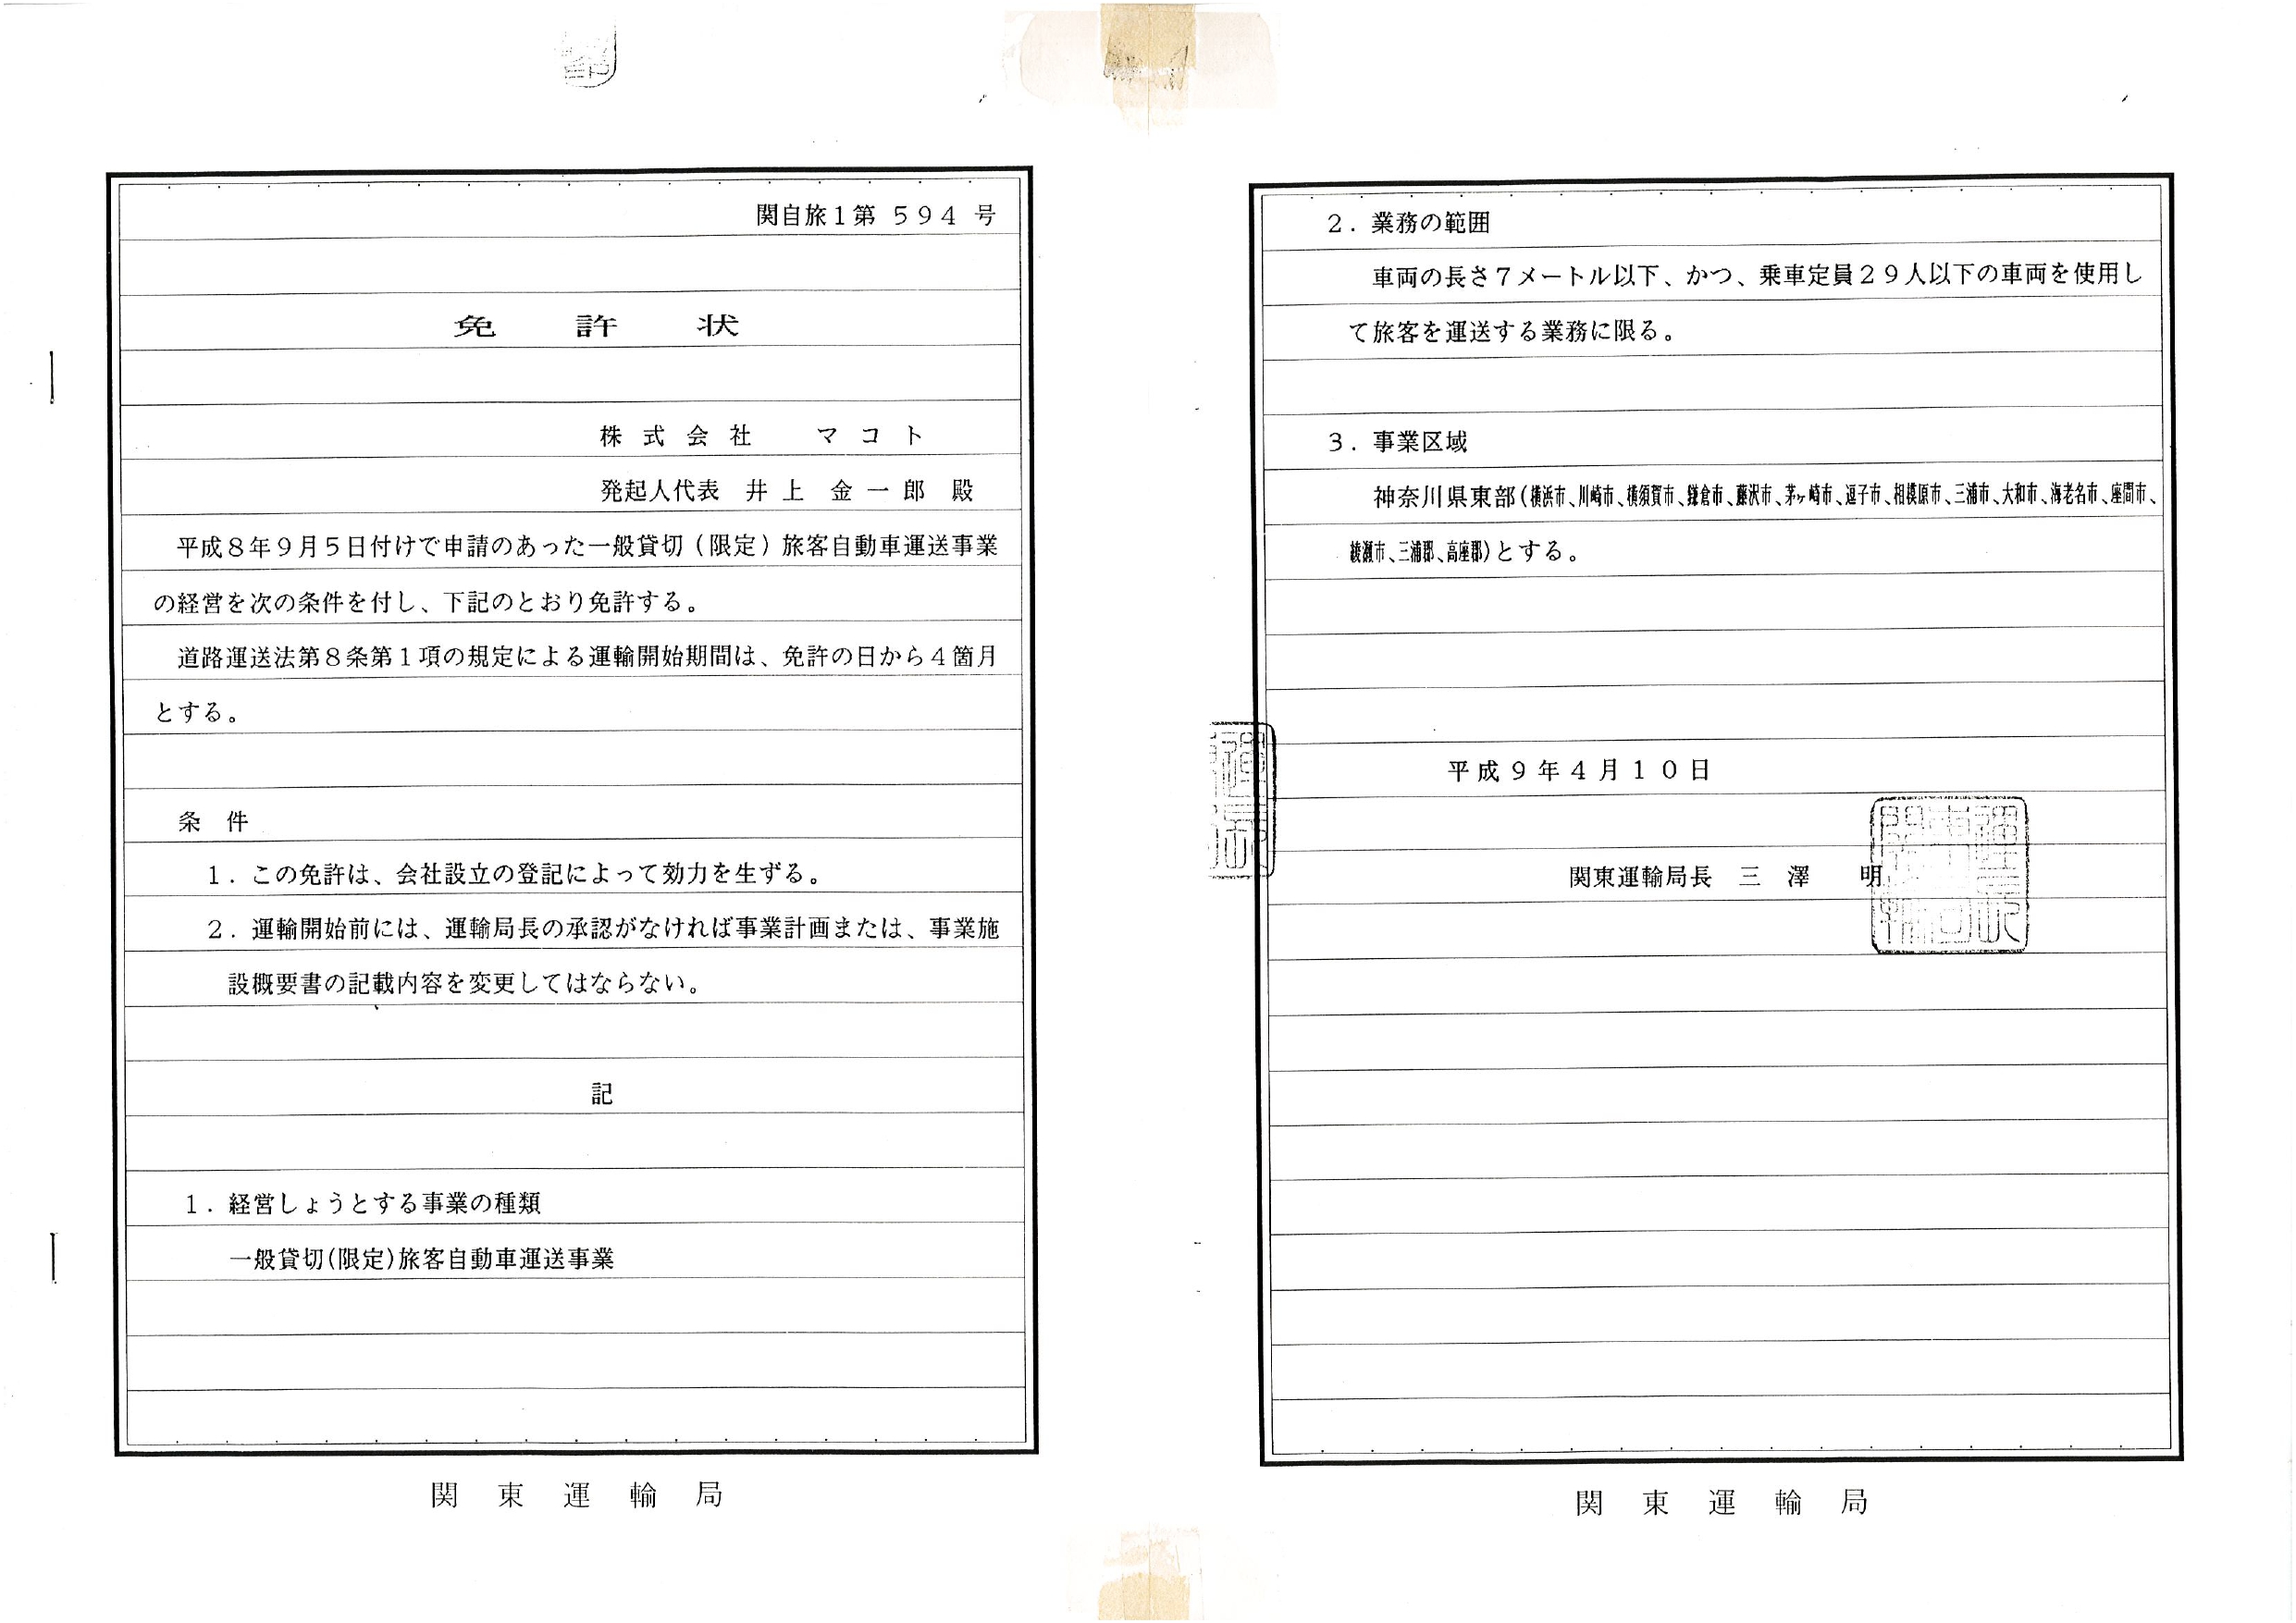 関自旅1第 594 号
免 許 状
株 式 会 社 マ コ ト
発起人代表 井 上 金 一 郎 殿
平成8年9月5日付けで申請のあった一般貸切(限定)旅客自動車運送事業
の経営を次の条件を付し、下記のとおり免許する。
道路運送法第8条第1項の規定による運輸開始期間は、免許の日から4箇月
とする。
条 件
1.この免許は、会社設立の登記によって効力を生ずる。
2.運輸開始前には、運輸局長の承認がなければ事業計画または、事業施
設概要書の記載内容を変更してはならない。
記
1.経営しょうとする事業の種類
一般貸切(限定)旅客自動車運送事業
関 東 運 輸 局
2.業務の範囲
車両の長さ7メートル以下、かつ、乗車定員29人以下の車両を使用し
て旅客を運送する業務に限る。
3.事業区域
神奈川県東部(横浜市、川崎市、横須賀市、鎌倉市、藤沢市、茅ヶ崎市、逗子市、相模原市、三浦市、大和市、海老名市、座間市、
綾瀬市、三浦郡、高座郡)とする。
平成9年4月10日
関東運輸局長 三 澤 明
関 東 運 輸 局